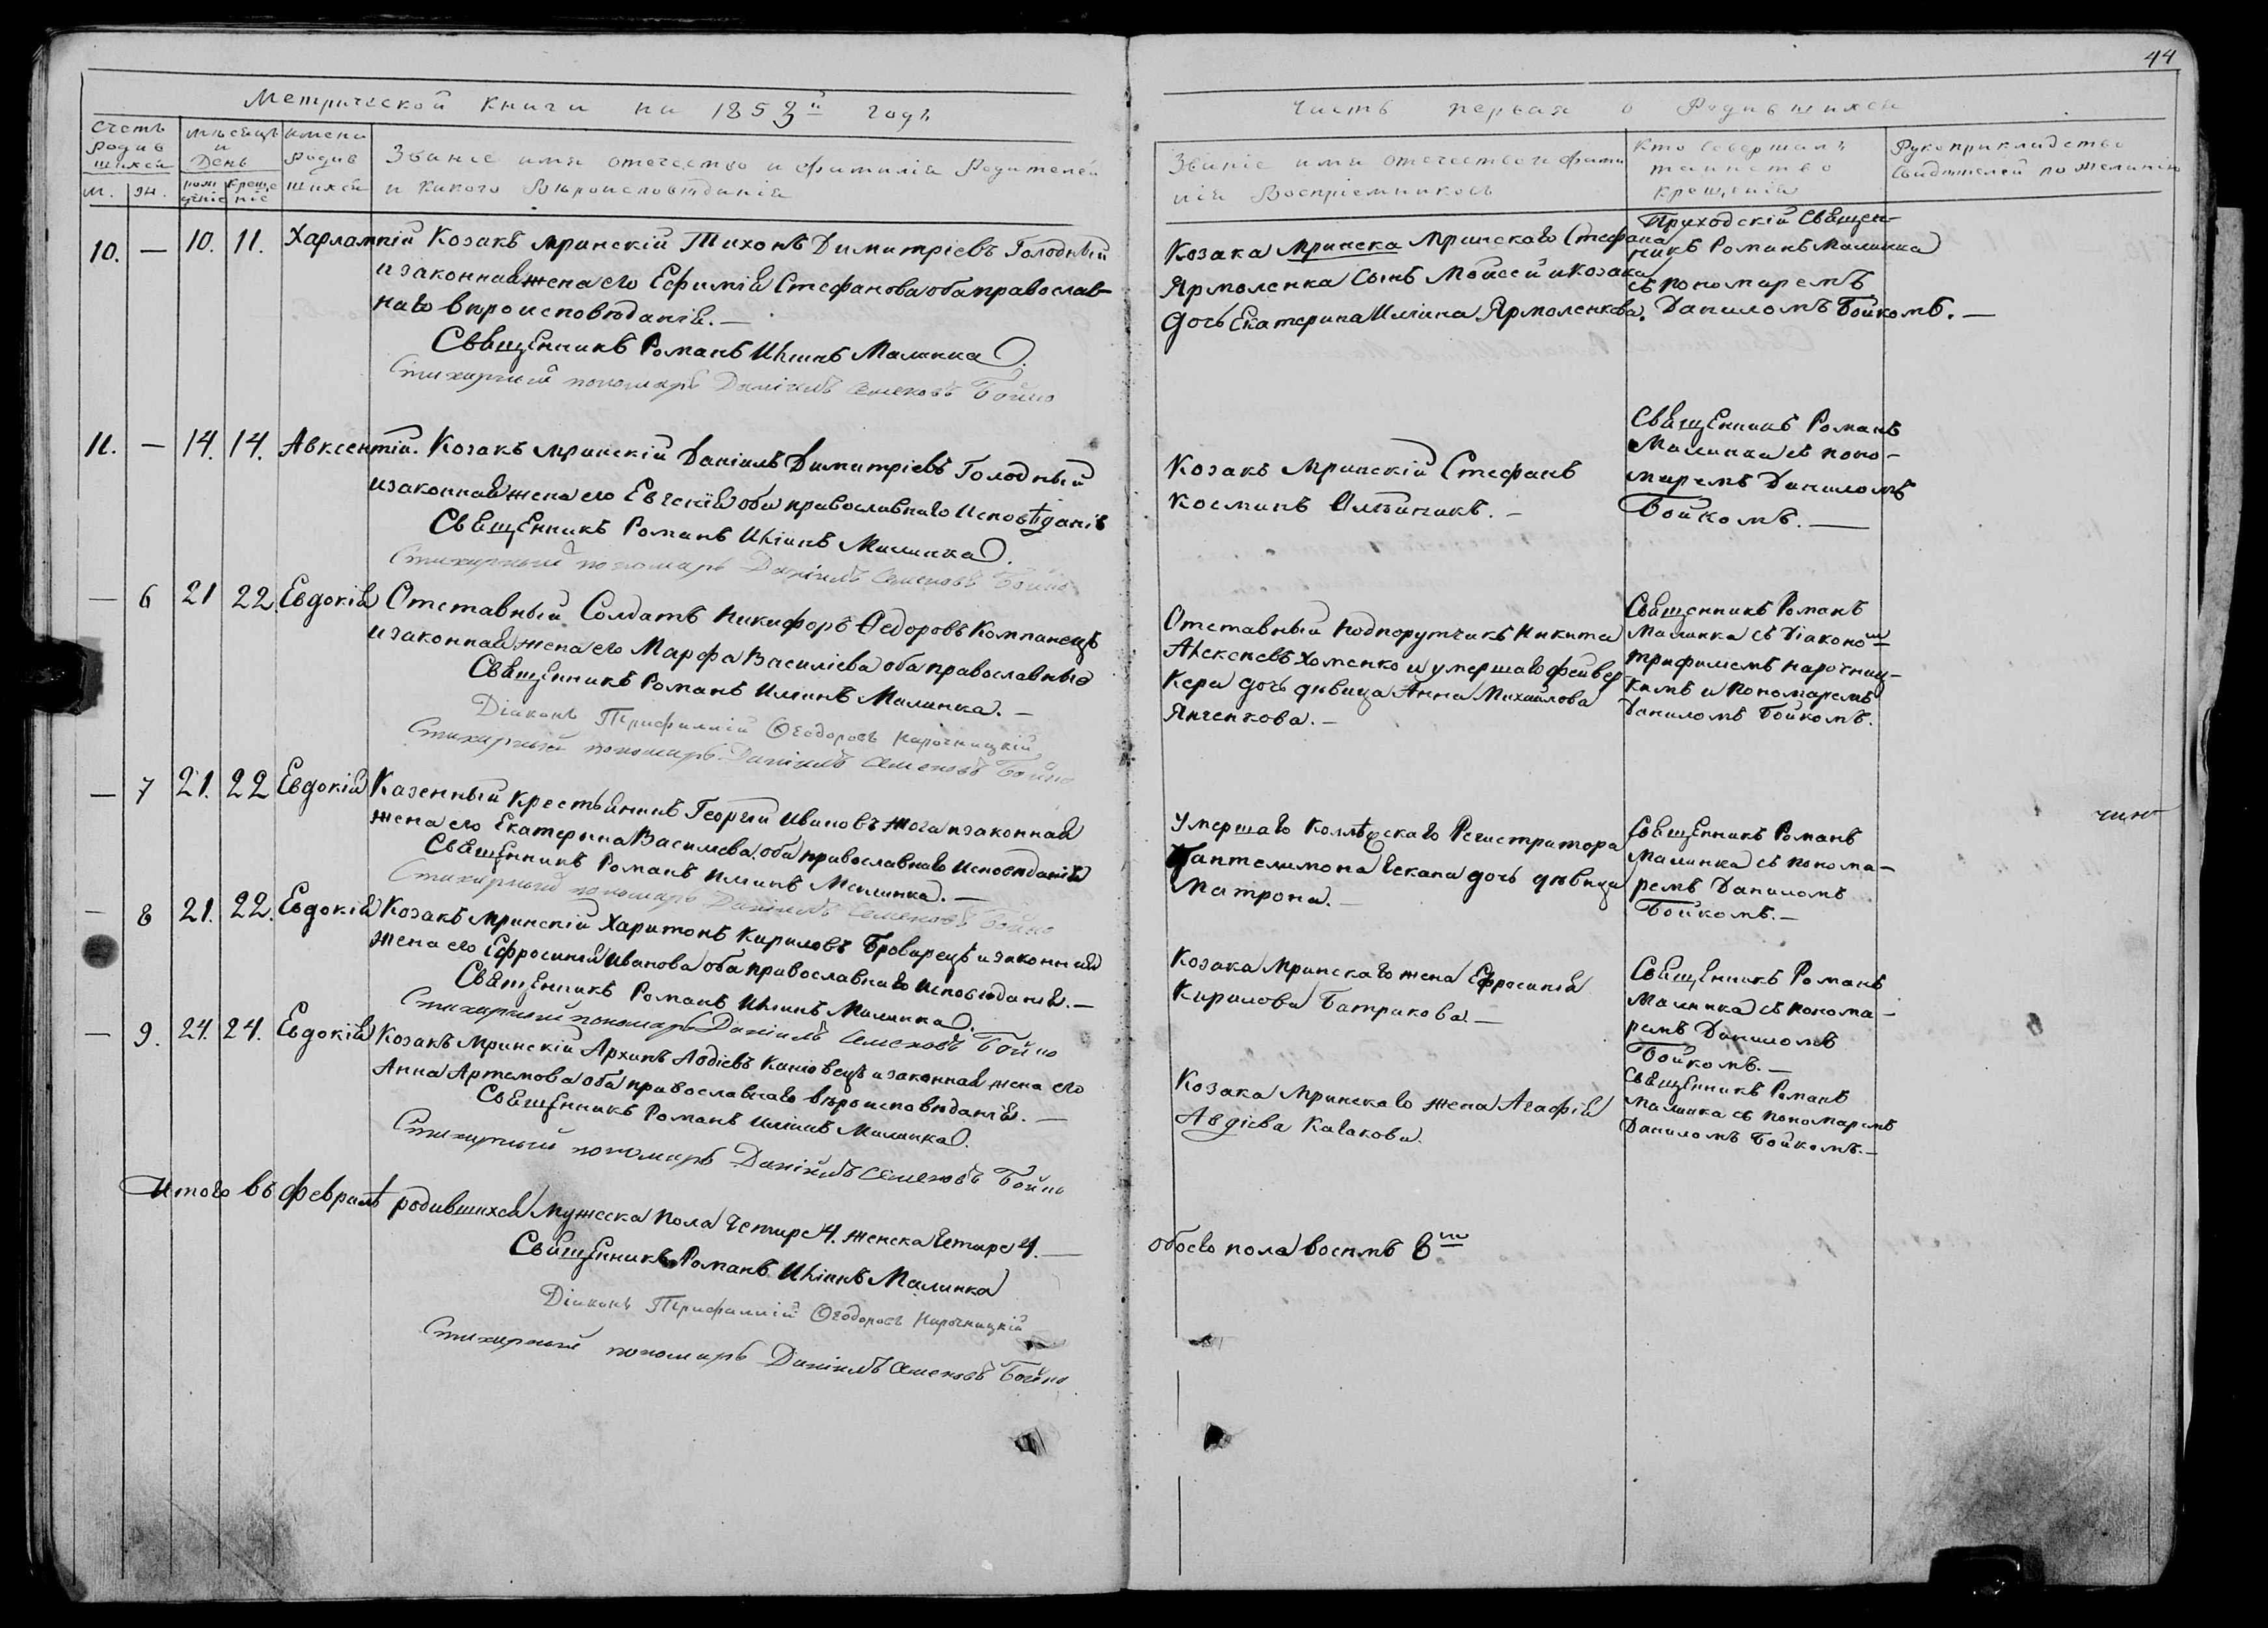 44
Метрической книги на 1853й годъ
Часть первая о Родившихся
Счетъ родившихся
М. Ж.
мѣсяцъ и День
рожденіе крещеніе
имена родившихся
Званіе имя отечество и фамилія Родителей
и какого вѣроисповѣданія
Званіе имя отечество и фами
лія Воспріемниковъ
Кто совершалъ
таинство
крещенія
Рукоприкладство
свидѣтелей по желанію
10. — 10. 11. Харлампій Козакъ мринскій Тихонъ Димитріевъ Голодный
и законная жена его Ефимія Стефанова оба православ-
наго вѣроисповѣданія. —
Священникъ Романъ Иліинъ Малинка
Стихарный пономарь Даніилъ Семеновъ Бойко
Козака Мринска Мринскаго Стефана
Ярмоленка сынъ Моисей и козака
дочь Екатерина Илиина Ярмоленкова.
Приходскій Священ-
никъ Романъ Малинка
съ пономаремъ
Даниломъ Бойкомъ. —
11. — 14. 14. Авксентій. Козакъ мринскій Даніилъ Димитріевъ Голодный
и законная жена его Евгенія оба православнаго исповѣданія
Священникъ Романъ Иліинъ Малинка.
Стихарный пономарь Даніилъ Семеновъ Бойко
Козакъ Мринскій Стефанъ
Косминъ Олѣйникъ. —
Священникъ Романъ
Малинка съ поно-
маремъ Даниломъ
Бойкомъ. —
— 6 21 22 Евдокія Отставный Солдатъ Никифоръ Ѳедоровъ Компанецъ
и законная жена его Марфа Василіева оба православные
Священникъ Романъ Илиинъ Малинка. —
Діаконъ Трифиллій Ѳеодоровъ Нарочницкій
Стихарный пономарь Даніилъ Семеновъ Бойко
Отставный подпорутчикъ Никита
Алексѣевъ Хоменко и умершаго фейвер
кера дочь дѣвица Анна Михайлова
Янченкова. —
Священникъ Романъ
Малинка съ діакономъ
Трифилиемъ Нарочниц-
кимъ и пономаремъ
Даниломъ Бойкомъ.
— 7 21. 22 Евдокія Казенный крестьянинъ Георгій Ивановъ Жога и законная
жена его Екатерина Василиева оба православнаго исповѣданія
Священникъ Романъ Илиинъ Малинка. —
Стихарный пономарь Даніилъ Семеновъ Бойко
Умершаго Коллѣжскаго Регистратора
Пантелимона Чекана дочь дѣвица
Матрона. —
Священникъ Романъ
Малинка съ понома-
ремъ Даниломъ
Бойкомъ. —
— 8 21. 22. Евдокія Козакъ Мринскій Харитонъ Кириловъ Броварецъ и законная
жена его Ефросинія Иванова оба православнаго исповѣданія. —
Священникъ Романъ Иліинъ Малинка.
Стихарный пономарь Даніилъ Семеновъ Бойко
Козака Мринскаго жена Ефросинія
Кирилова Батракова. —
Священникъ Романъ
Малинка съ понома-
ремъ Даниломъ
Бойкомъ. —
— 9. 24. 24. Евдокія Козакъ Мринскій Архипъ Авдіевъ Каніовецъ и законная жена его
Анна Артемова оба православнаго вѣроисповѣданія. —
Священникъ Романъ Иліинъ Малинка.
Стихарный пономарь Даніилъ Семеновъ Бойко
Козака Мринскаго жена Агафія
Авдіева Казакова.
Священникъ Романъ
Малинка съ пономаремъ
Даниломъ Бойкомъ. —
Итого въ февралѣ родившихся мужеска пола четыре 4. женска четыре 4. —
обоего пола восемь 8мь
Священникъ Романъ Иліинъ Малинка
Діаконъ Трифиллій Ѳеодоровъ Нарочницкій
Стихарный пономарь Даніилъ Семеновъ Бойко